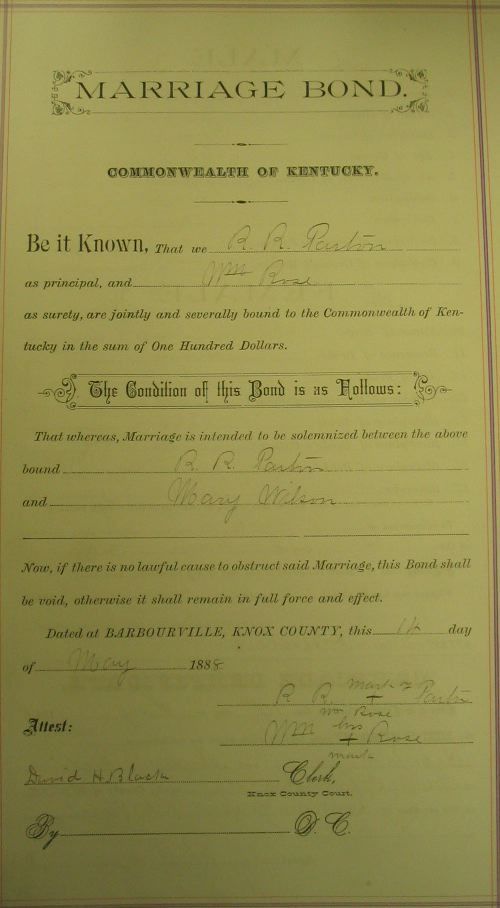 MARRIAGE BOND.
COMMONWEALTH OF KENTUCKY.
Be it Known, That we R. R. Parton
as principal, and Wm Rose
as surety, are jointly and severally bound to the Commonwealth of Ken-
tucky in the sum of One Hundred Dollars.
The Condition of this Bond is as Follows:
That whereas, Marriage is intended to be solemnized between the above
bound R. R. Parton
and Mary Wilson
Now, if there is no lawful cause to obstruct said Marriage, this Bond shall
be void, otherwise it shall remain in full force and effect.
Dated at BARBOURVILLE, KNOX COUNTY, this day
of May 1888
R R mark of + Parton
Wm Rose
Attest: Wm his + Rose
mark
David H. Black Clerk,
Knox County Court.
By D. C.